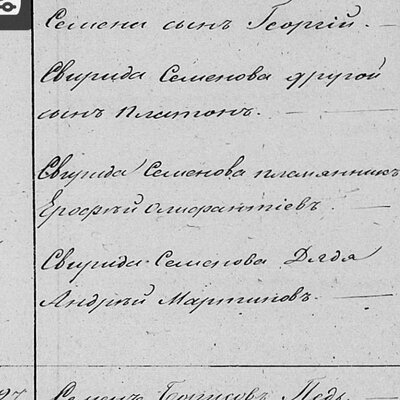 Семена сынъ Георгій.
Свирида Семенова другой
сынъ Платонъ.
Свирида Семенова племянникъ
Ерофѣй Алифантіевъ
Свирида Семенова Дядя
Андрѣй Мартиновъ.
97 Семенъ Борисовъ